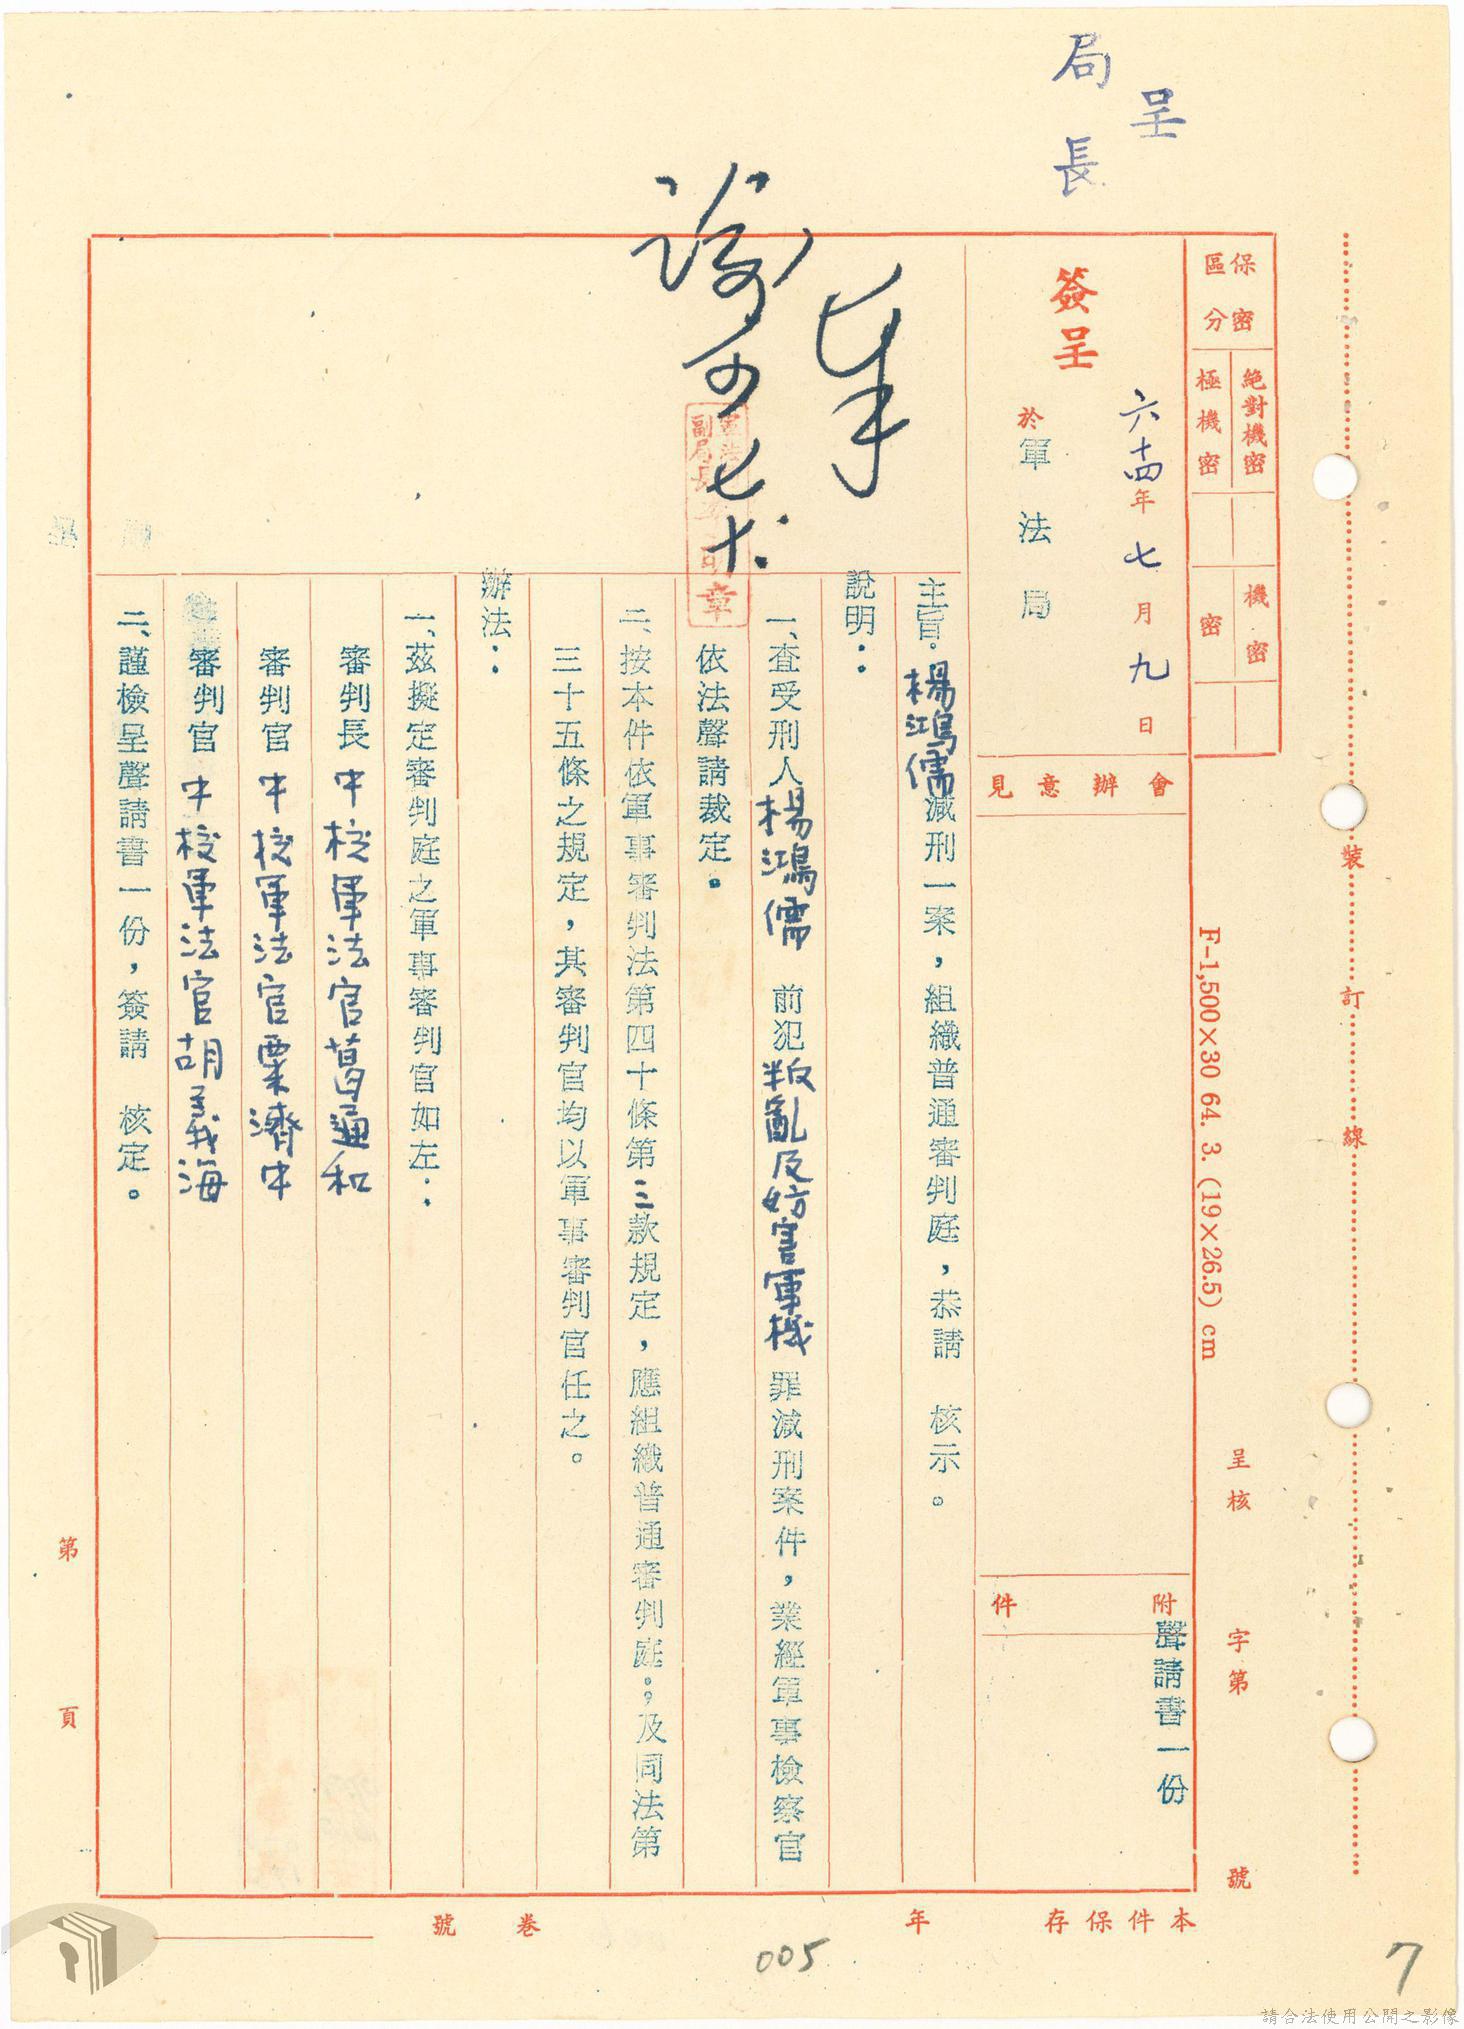 呈
局長
保密區分
絕對機密
極機密
機密
密
簽呈
六十四年七月九日
於軍法局
會辦意見
附件
聲請書一份
主旨:楊鴻儒減刑一案，組織普通審判庭，恭請　核示。
說明：
一、查受刑人楊鴻儒　前犯叛亂及妨害軍機罪減刑案件，業經軍事檢察官
依法聲請裁定。
二、按本件依軍事審判法第四十條第三款規定，應組織普通審判庭；及同法第
三十五條之規定，其審判官均以軍事審判官任之。
辦法：
一、茲擬定審判庭之軍事審判官如左：
審判長 中校軍法官葛遍和
審判官 中校軍法官粟濟中
審判官 中校軍法官胡義海
二、謹檢呈聲請書一份，簽請　核定。
裝
訂
線
F-1,500×30 64. 3. (19×26.5) cm
呈核　字第　號
第　頁
本件保存　年
卷　號
005
7
請合法使用公開之影像